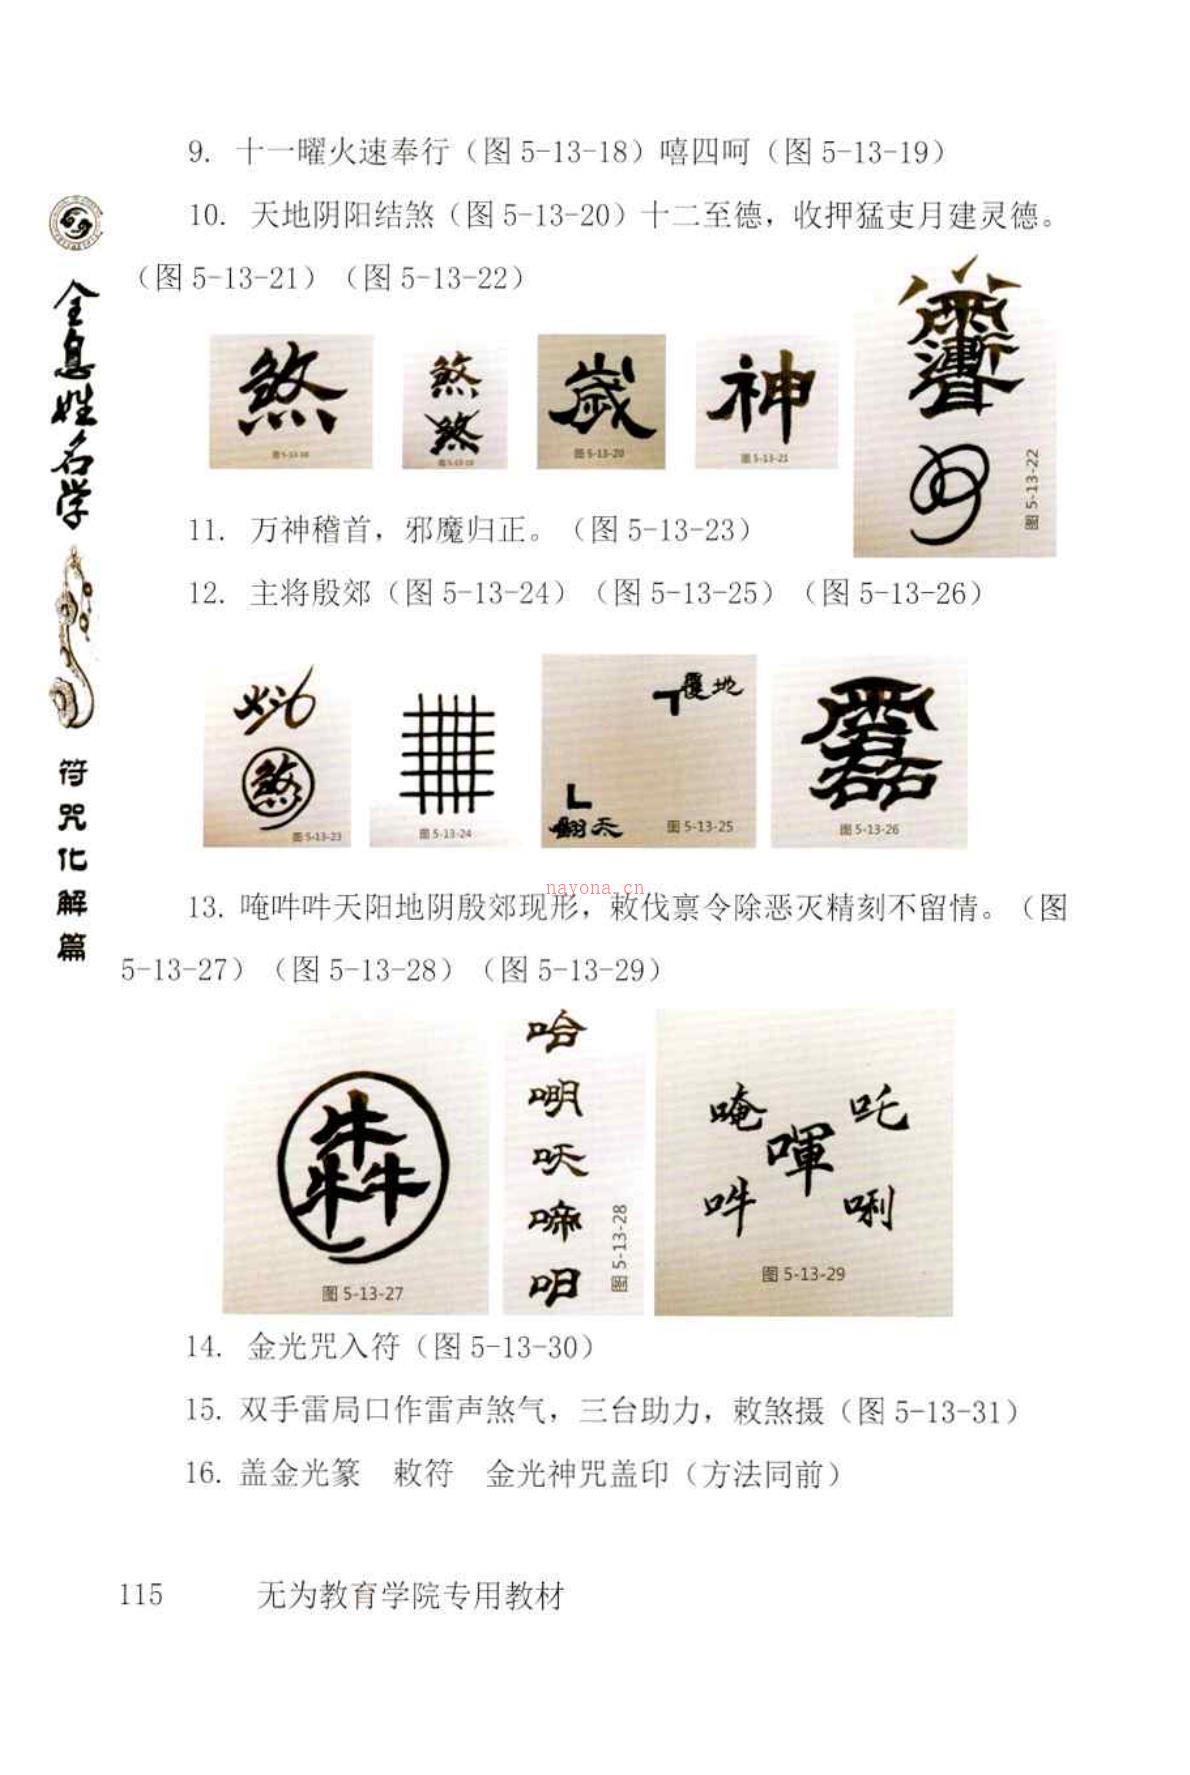 9. 十一曜火速奉行（图 5-13-18）嘻四呵（图 5-13-19）
10. 天地阴阳结煞（图 5-13-20）十二至德，收押猛吏月建灵德。
（图 5-13-21）（图 5-13-22）
煞
图5-13-18
煞
煞
图5-13-19
歳
图 5-13-20
神
图 5-13-21
图 5-13-22
11. 万神稽首，邪魔归正。（图 5-13-23）
12. 主将殷郊（图 5-13-24）（图 5-13-25）（图 5-13-26）
煞
图 5-13-23
图 5-13-24
覆地
翻天
图 5-13-25
图 5-13-26
nayona.cn
13. 唵吽吽天阳地阴殷郊现形，敕伐禀令除恶灭精刻不留情。（图
5-13-27）（图 5-13-28）（图 5-13-29）
犇
图 5-13-27
哈
㖠
啼
图 5-13-28
唵
吒
喗
吽
唎
图 5-13-29
14. 金光咒入符（图 5-13-30）
15. 双手雷局口作雷声煞气，三台助力，敕煞摄（图 5-13-31）
16. 盖金光篆 敕符 金光神咒盖印（方法同前）
115 无为教育学院专用教材
全息姓名学
符咒化解篇